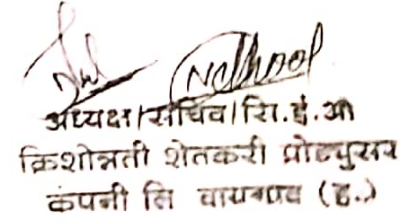 अध्यक्ष/सचिव/सि.ई.ओ
क्रिशोन्नती शेतकरी प्रोड्युसर
कंपनी लि (ह.)